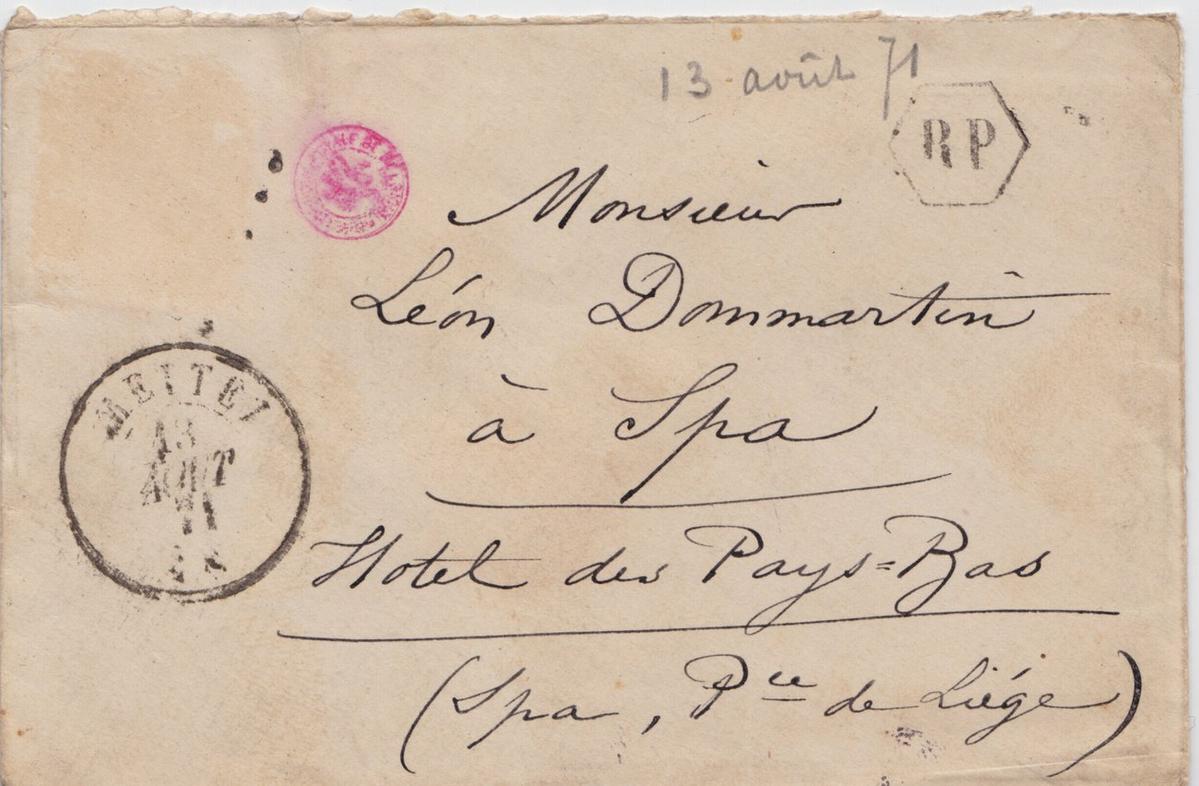 13 août 71
RP
Monsieur
Léon Dommartin
à Spa
METTET
13
AOUT
71
Hotel des Pays=Bas
(Spa, Pce de Liége)